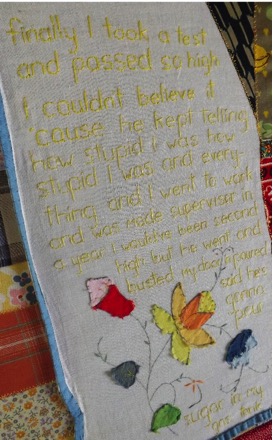 finally I took a test
and passed so high
I couldn't believe it
'cause he kept telling
how stupid I was how
stupid I was and every-
thing and I went to work
and was made supervisor in
a year I would've been second
high but he went and
busted my door
said he's
gonna
pour
sugar in my
gas